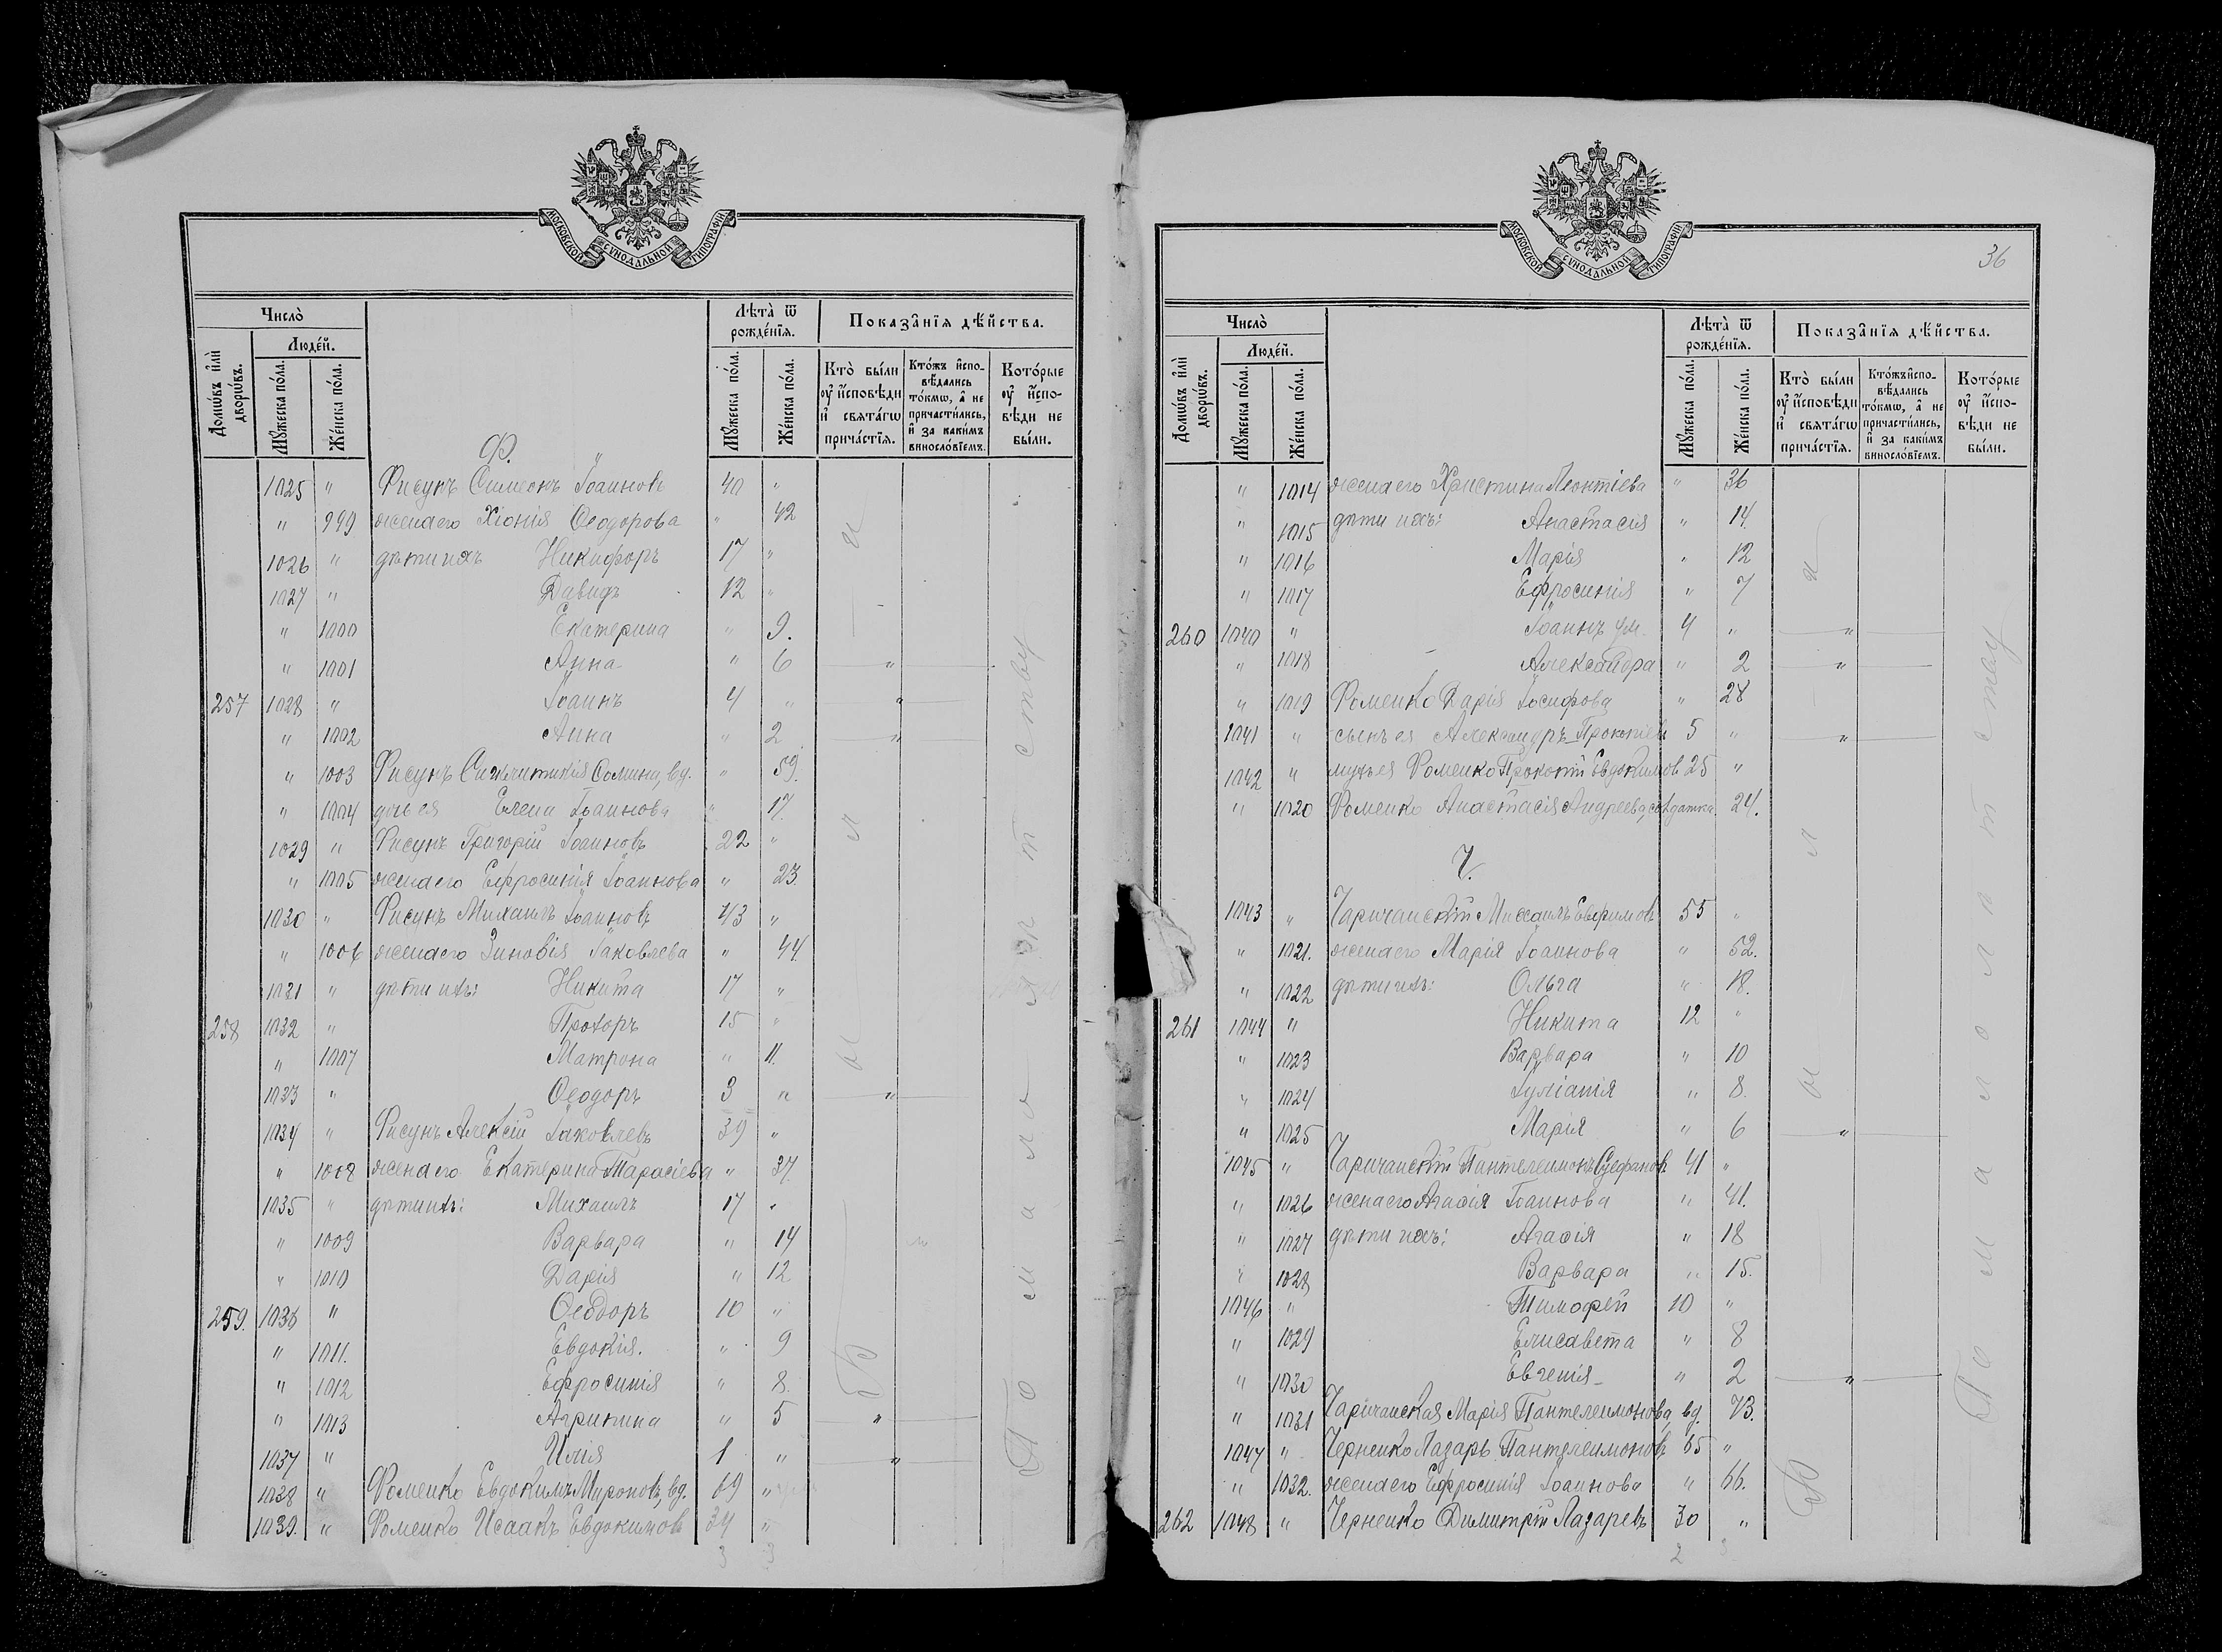 МОСКОВСКОЙ СѴНОДАЛЬНОЙ ТИПОГРАФІИ
Число̀
Людéй.
Домѡ́въ и҆лѝ дворѡ́въ.
Мꙋ́жеска по́ла.
Же́нска по́ла.
Лѣта̀ ѿ рожде́нїѧ.
Мꙋ́жеска по́ла.
Же́нска по́ла.
Показа̑нїѧ дѣ́йства.
Кто̀ бы́ли оу҆ и҆сповѣ́ди и҆ свѧта́гѡ прича́стїѧ.
Кто́жъ и҆спо-вѣ́дались то́кмѡ, а҆ не причасти́лись, и҆ за каки́мъ винослові́емъ.
Кото́рые оу҆ и҆спо-вѣ́ди не бы́ли.
Ф.
1025 " Рисунъ Симеонъ Іоанновъ 40 "
" 999 жена его Хіонія Ѳеодорова " 42
1026 " дѣти ихъ Никифоръ 17 "
1027 " Давидъ 12 "
" 1000 Екатерина " 9.
" 1001 Анна " 6 "
257 1028 " Іоаннъ 4 " "
" 1002 Анна " 2 "
" 1003 Рисунъ Ѳомина, вд. " 59.
" 1004 дочь ея Елена Іоаннова " 17.
1029 " Рисунъ Григорій Іоанновъ 22 "
" 1005 жена его Ефросинія Іоаннова " 23.
1030 " Рисунъ Михаилъ Іоанновъ 43 "
" 1006 жена его Зиновія Іаковлева " 44.
1031 " дѣти ихъ: Никита 17 "
258 1032 " Прохоръ 15 "
" 1007 Матрона " 11.
1033 " Ѳеодоръ 3 " "
1034 " Рисунъ Алексій Іаковлевъ 39 "
" 1008 жена его Екатерина Тарасіева " 37.
1035 " дѣти ихъ: Михаилъ 17 "
" 1009 Варвара " 14
" 1010 Дарія " 12
259. 1036 " Ѳеодоръ 10 "
" 1011. Евдокія. " 9
" 1012 Ефросинія " 8.
" 1013 Агрипина " 5 "
1037 " Илія 1 " "
1038 " Фоменко Евдокимъ Мироновъ, вд. 69 "
1039. " Фоменко Исаакъ Евдокимовъ 34 "
По малолѣтству
Были
МОСКОВСКОЙ СѴНОДАЛЬНОЙ ТИПОГРАФІИ
36
Число̀
Людéй.
Домѡ́въ и҆лѝ дворѡ́въ.
Мꙋ́жеска по́ла.
Же́нска по́ла.
Лѣта̀ ѿ рожде́нїѧ.
Мꙋ́жеска по́ла.
Же́нска по́ла.
Показа̑нїѧ дѣ́йства.
Кто̀ бы́ли оу҆ и҆сповѣ́ди и҆ свѧта́гѡ прича́стїѧ.
Кто́жъ и҆спо-вѣ́дались то́кмѡ, а҆ не причасти́лись, и҆ за каки́мъ винослові́емъ.
Кото́рые оу҆ и҆спо-вѣ́ди не бы́ли.
" 1014 жена его Христина Леонтіева " 36
" 1015 дѣти ихъ: Анастасія " 14.
" 1016 Марія " 12
" 1017 Ефросинія " 7
260 1040 " Іоаннъ ум. 4 " "
" 1018 Александра " 2 "
" 1019 Фоменко Дарія Іосифова " 28
1041 " сынъ ея Александръ Прокопіевъ 5 " "
1042 " мужъ ея Фоменко Прокопій Евдокимов 25 "
" 1020 Фоменко Анастасія Андреева, солдатка. 24.
Ч.
1043 " Чаричанскій Михаилъ Евфимовъ 55 "
" 1021. жена его Марія Іоаннова " 52.
" 1022 дѣти ихъ: Ольга " 18.
261 1044 " Никита 12 "
" 1023 Варвара " 10
" 1024 Іуліанія " 8.
" 1025 Марія " 6 "
1045 " Чаричанскій Пантелеимонъ Стефановъ 41 "
" 1026 жена его Агафія Іоаннова " 41.
" 1027 дѣти ихъ: Агафія " 18
" 1028 Варвара " 15.
1046 " Тимофей 10 "
" 1029 Елисавета " 8
" 1030 Евгенія " 2 "
" 1031 Чаричанская Марія Пантелеимонова, вд. 73.
1047 " Черненко Лазарь Пантелеимоновъ 65 "
" 1032. жена его Ефросинія Іоаннова " 66.
262 1048 " Черненко Димитрій Лазаревъ 30 "
По малолѣтству
Были